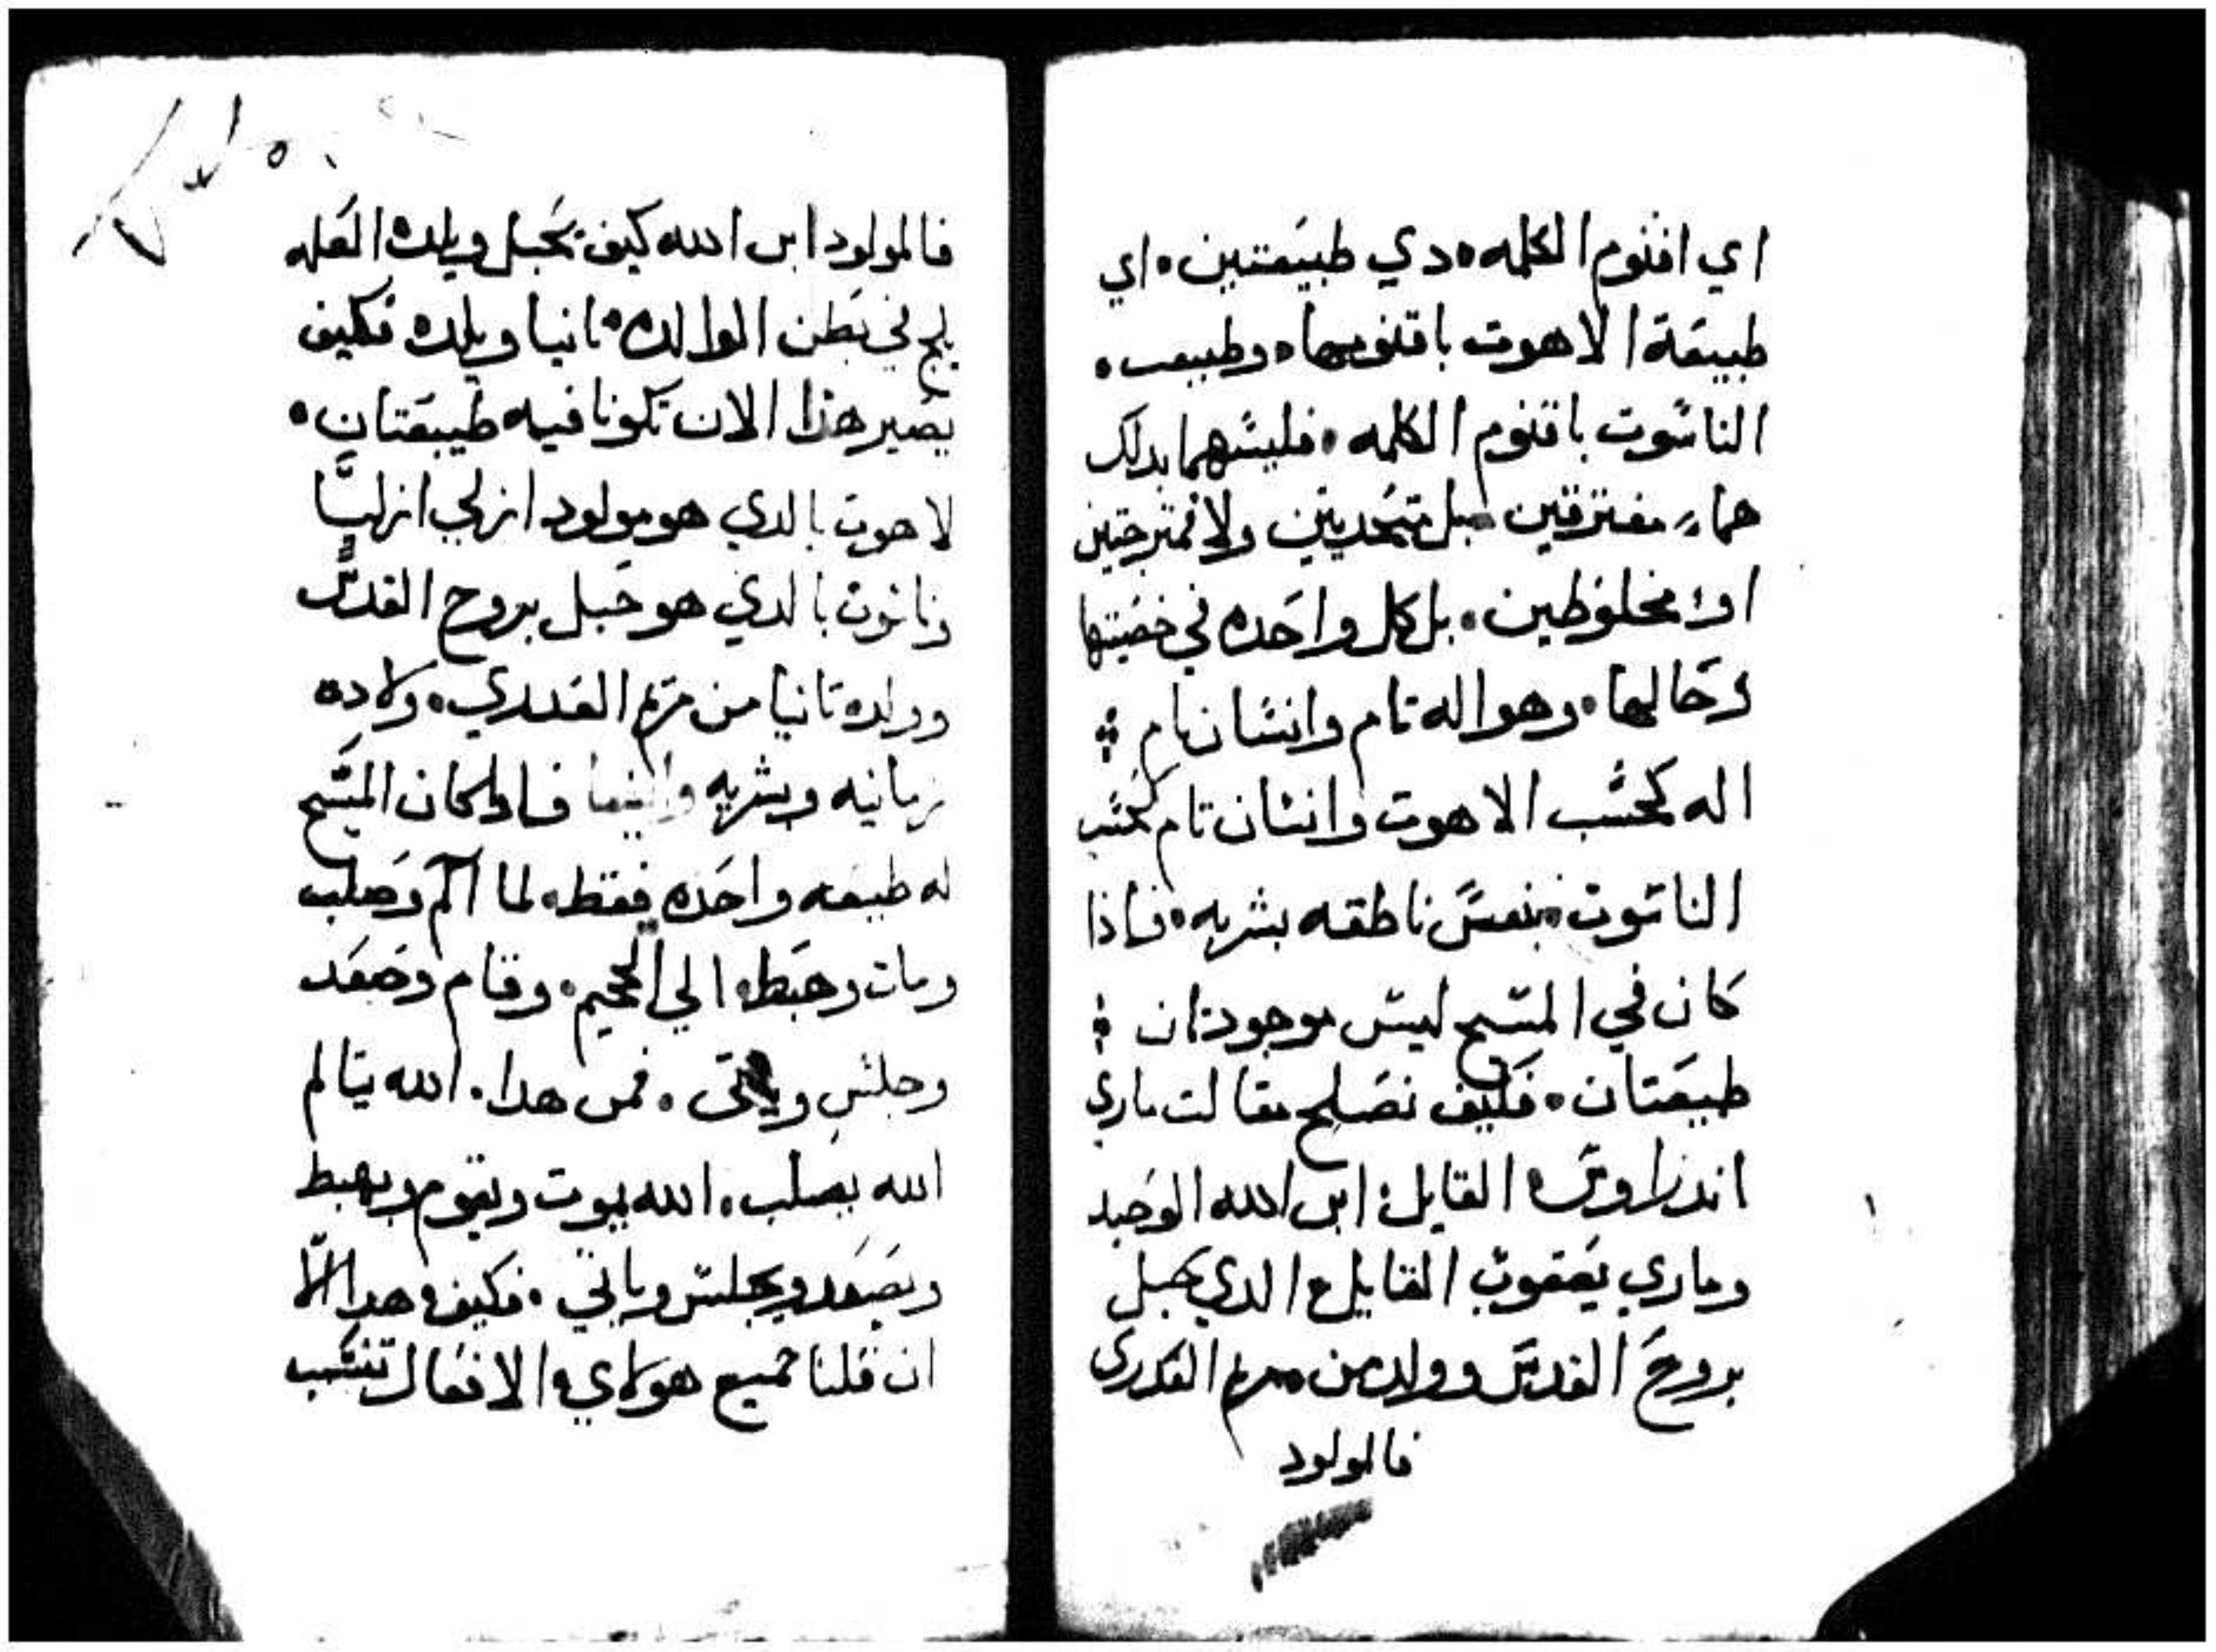 اي اقنوم الكلمه ٥ دي طبيعتين ٥ اي
طبيعة الاهوت باقنومها ٥ وطبيعت ٥
الناسوت باقنوم الكلمه ٥ فليسهما بدلك
هما مفترقين بل متحديين ولا ممترجتين
او مخلوطين ٥ بل كل واحده في خصيتها
وحالها ٥ وهو اله تام وانسان تام
اله كحسب الاهوت وانسان تام كحسب
الناسوت بنفس ناطقه بشريه ٥ فاذا
كان في المسيح ليس موجودتان
طبيعتان ٥ فكيف تصلح مقالت ماري
اندراوس القايل ابن الله الوحيد
وماري يعقوب القايل الدي حبل
بروح القدس وولد من مريم العدري
فالمولود
فالمولود ابن الله كيف يحبل ويلده العله
يلج في بطن الوالده تانيا ويلده فكيف
يصير هذا الان تكونا فيه طبيعتان ٥
لاهوت بالدي هو مولود ازلي ازليًا
وناسوت بالدي هو حبل بروح القدس
وولده تانيا من مريم العدري ٥ ولاده
زمانيه وبشريه وايضا فاداكان المسيح
له طبيعه واحده فقط ٥ لما الم وصلب
ومات وهبط الي الجحيم ٥ وقام وصعد
وجلس وياتى ٥ فمن هدا ٠ الله يتالم
الله يصلب ٥ الله يموت ويقوم ويهبط
ويصعد ويجلس وياتي ٥ فكيف هدا الّا
ان قلنا جميع هولاي الافعال تنتسب